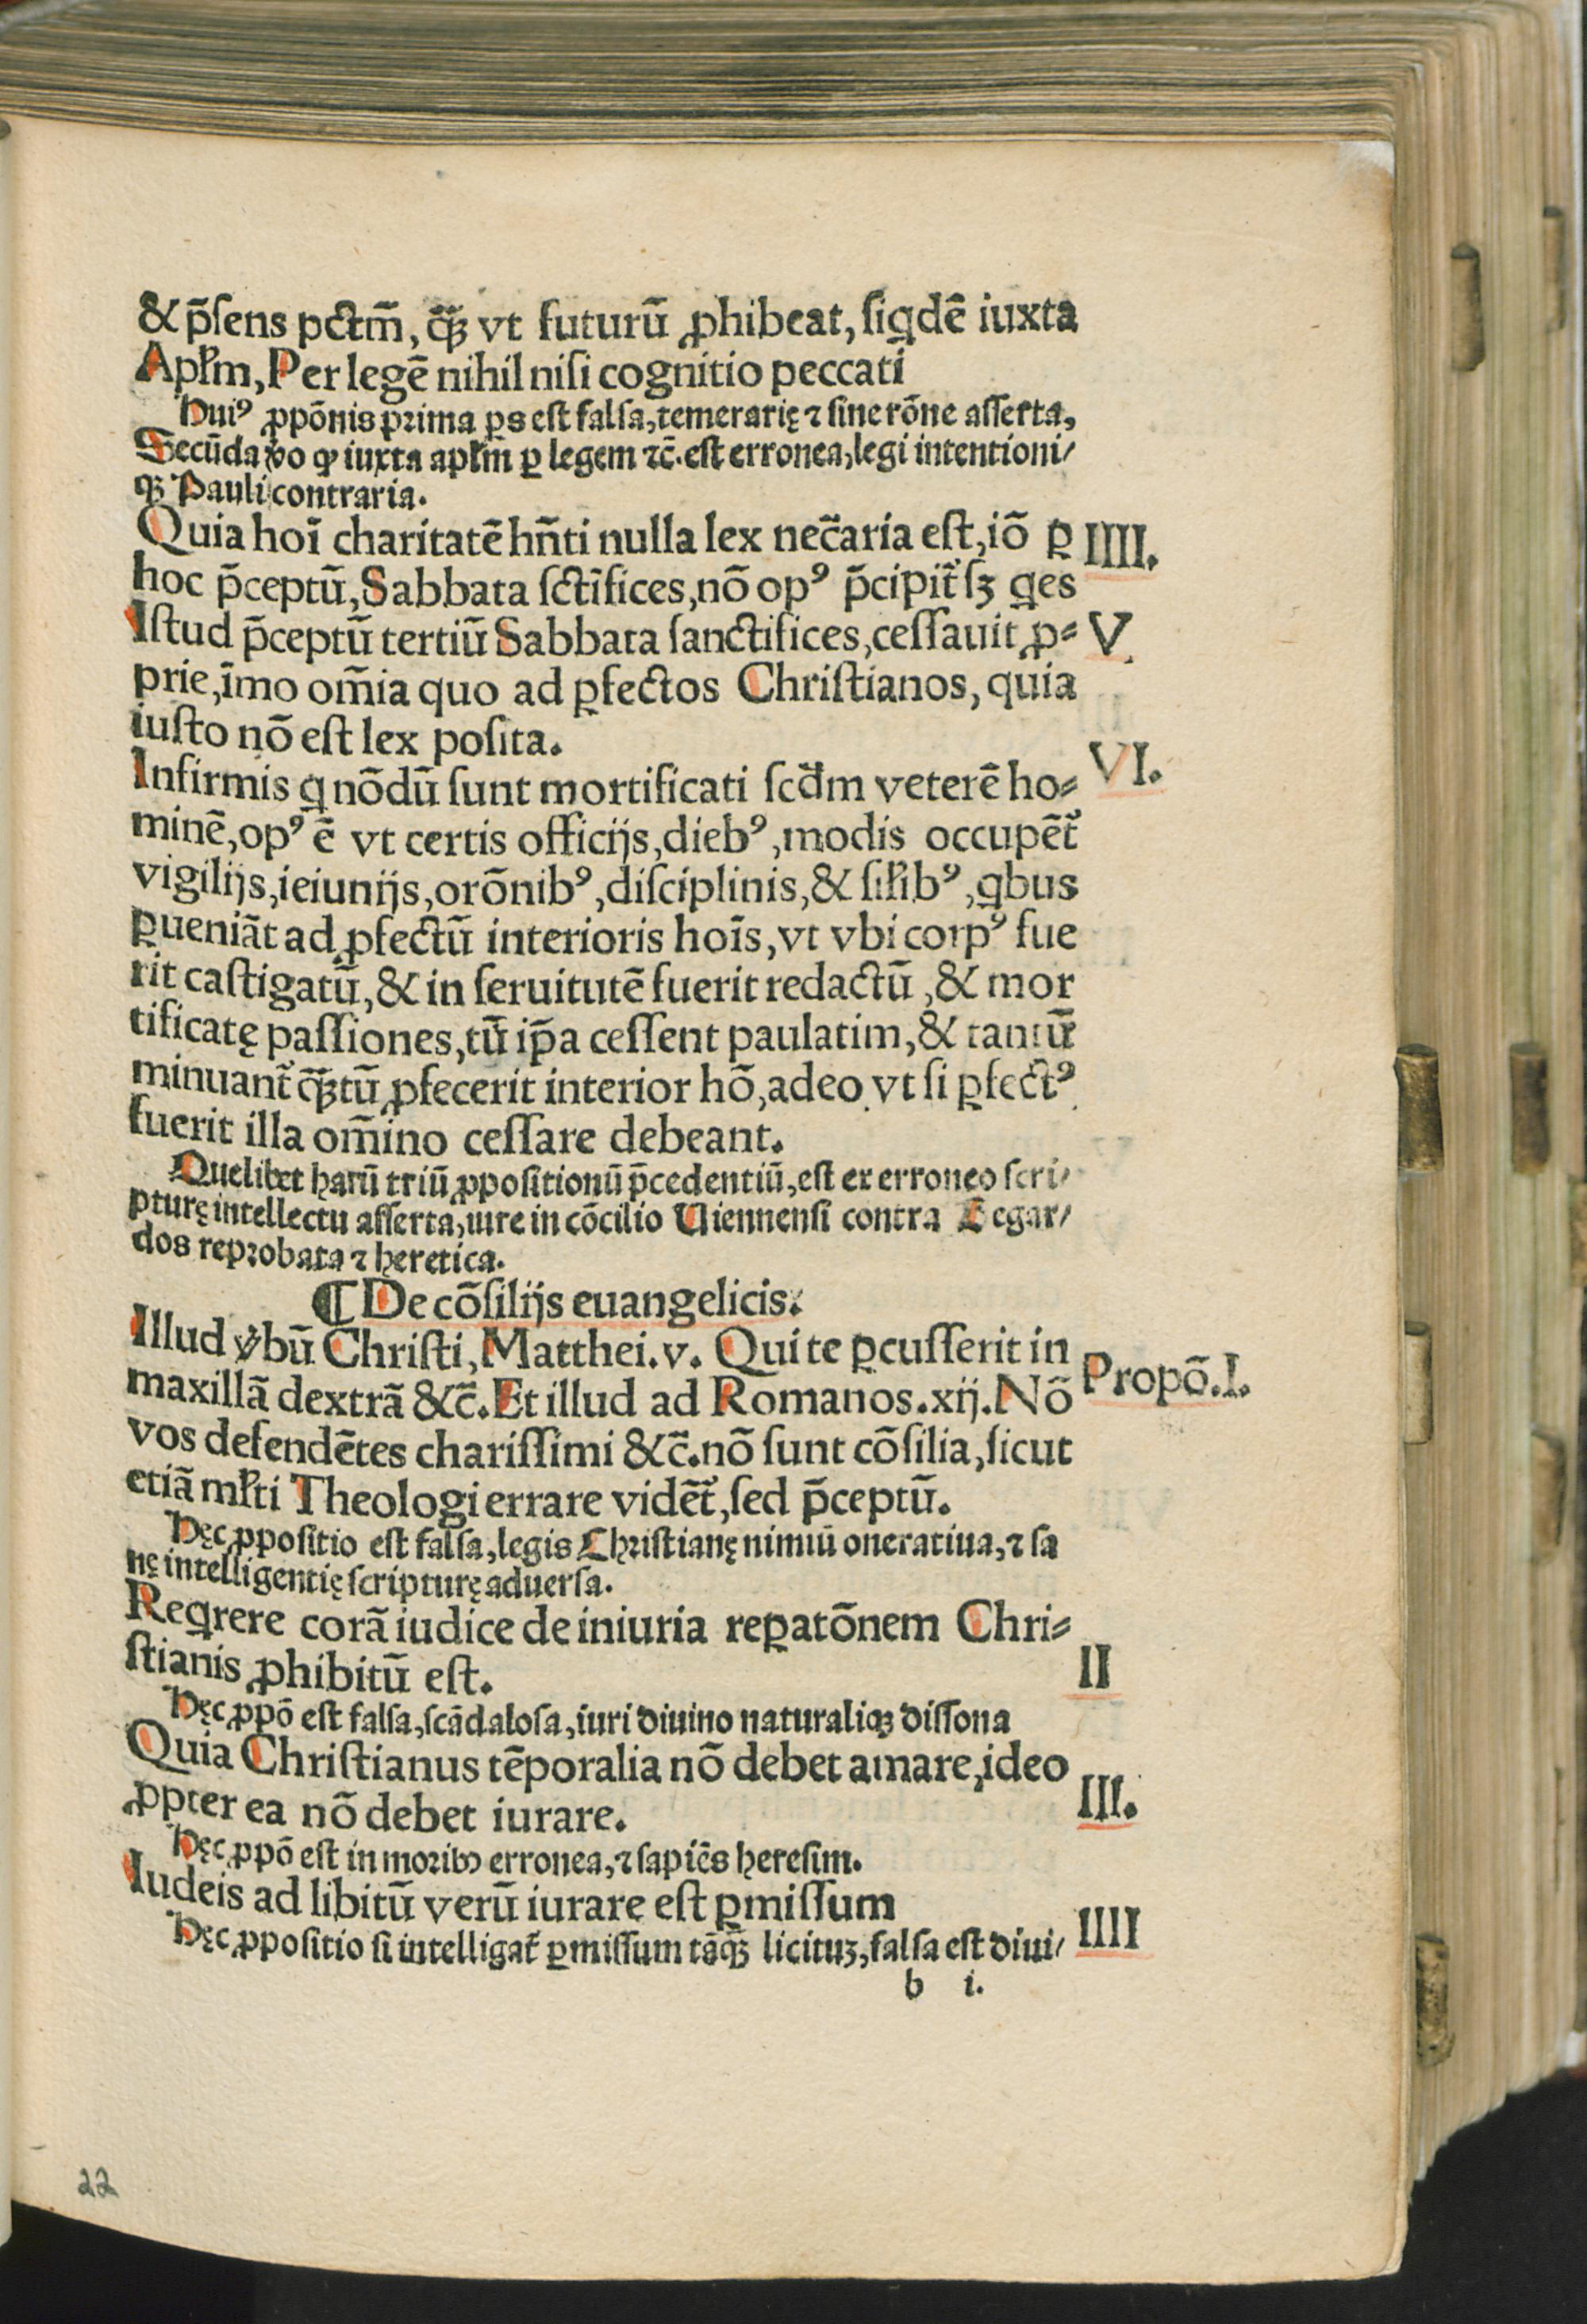 & p̄ſens pctm̄, q̄ꝫ vt futurū ꝓhibeat, ſiqdē iuxta
Apłm, Per legē nihil niſi cognitio peccati
Huiꝰ ꝓpōnis prima ꝑs eſt falſa, temerarię ⁊ ſine rōne aſſerta,
Secūda ꝟo ꝙ iuxta apłm ꝑ legem ⁊c̄. eſt erronea, legi intentioni/
qꝫ Pauli contraria.
Quia hoī charitatē hn̄ti nulla lex nec̄aria eſt, iō ꝑ IIII.
hoc p̄ceptū, Sabbata ſctīfices, nō opꝰ p̄cipit᷑ ſꝫ qes
Iſtud p̄ceptū tertiū Sabbata ſanctifices, ceſſauit ꝓ⸗ V.
prie, īmo om̄ia quo ad ꝑfectos Chriſtianos, quia
iuſto nō eſt lex poſita.
Infirmis q nōdū ſunt mortificati ſcd̄m veterē ho⸗ VI.
minē, opꝰ ē vt certis officijs, diebꝰ, modis occupēt᷑
vigilijs, ieiunijs, orōnibꝰ, diſciplinis, & ſiłibꝰ, qbus
ꝑueniāt ad ꝓfectū interioris hoīs, vt vbi corpꝰ fue
rit caſtigatū, & in ſeruitutē fuerit redactū, & mor
tificatę paſſiones, tū ip̄a ceſſent paulatim, & tantū
minuant᷑ q̄ꝫtū ꝓfecerit interior hō, adeo vt ſi ꝑfectꝰ
fuerit illa om̄ino ceſſare debeant.
Quelibet harū triū ꝓpoſitionū p̄cedentiū, eſt ex erroneo ſcri/
pturę intellectu aſſerta, iure in cōcilio Uiennenſi contra Begar/
dos reprobata ⁊ heretica.
¶ De cōſilijs euangelicis.
Illud ꝟbū Chriſti, Matthei. v. Qui te ꝑcuſſerit in
maxillā dextrā &c̄. Et illud ad Romanos. xij. Nō Propō. I.
vos defendētes chariſſimi &c̄. nō ſunt cōſilia, ſicut
etiā młti Theologi errare vidēt᷑, ſed p̄ceptū.
Hęc ꝓpoſitio eſt falſa, legis Chriſtianę nimiū oneratiua, ⁊ ſa
nę intelligentię ſcripturę aduerſa.
Reqrere corā iudice de iniuria reꝑatōnem Chri⸗
ſtianis ꝓhibitū eſt. II
Hęc ꝓpō eſt falſa, ſcādaloſa, iuri diuino naturaliqꝫ diſſona
Quia Chriſtianus tēporalia nō debet amare, ideo
ꝓpter ea nō debet iurare. III.
Hęc ꝓpō eſt in moribꝰ erronea, ⁊ ſapiēs hereſim.
Iudeis ad libitū verū iurare eſt ꝑmiſſum
Hęc ꝓpoſitio ſi intelligat᷑ ꝑmiſſum tāq̄ꝫ licituꝫ, falſa eſt diui/ IIII
b i.
22